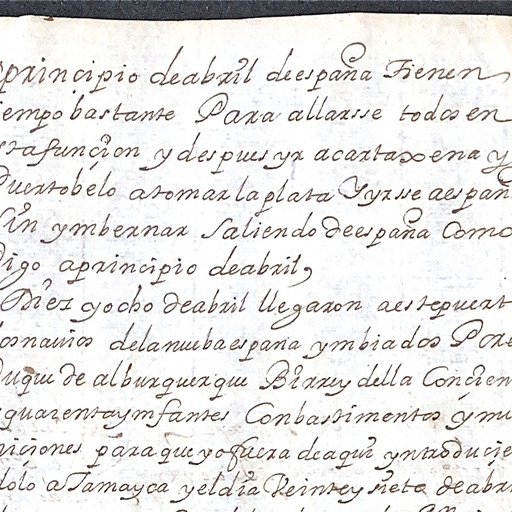 principio deabril deespaña Tienen
iempo bastante Para allarsse todos en
stafunçion ydespues yr acartaxena y
Puertobelo atomar laplata Yyrsse aespañ
Sin ymbernar Saliendo deespaña Como
digo aprincipio deabril,
Diez yocho deabril llegaron aestepuert
losnauios delanuebaespana ymbiados Por e
duque de alburquerque Birrey della Con çien
yquarentaymfantes Conbastimentos ymu
niciones paraque yo fuera deaqui yntroduçie
dolo aJamayca yeldia Veinteysiete deabri